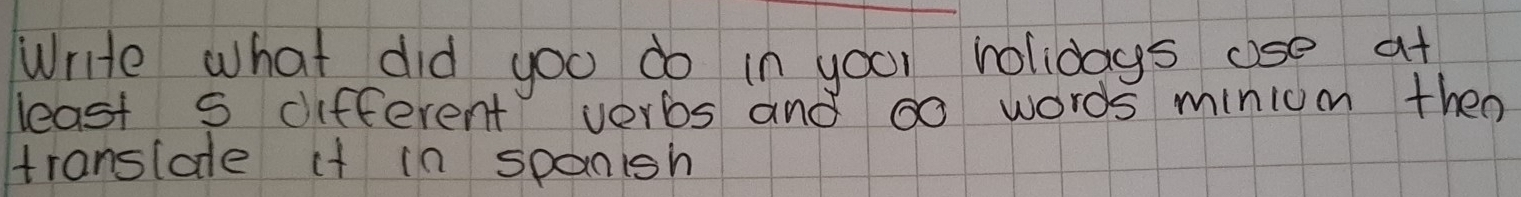 Write what did you do in your holidays use at
least 5 different verbs and 60 words minium then
translate it in spanish